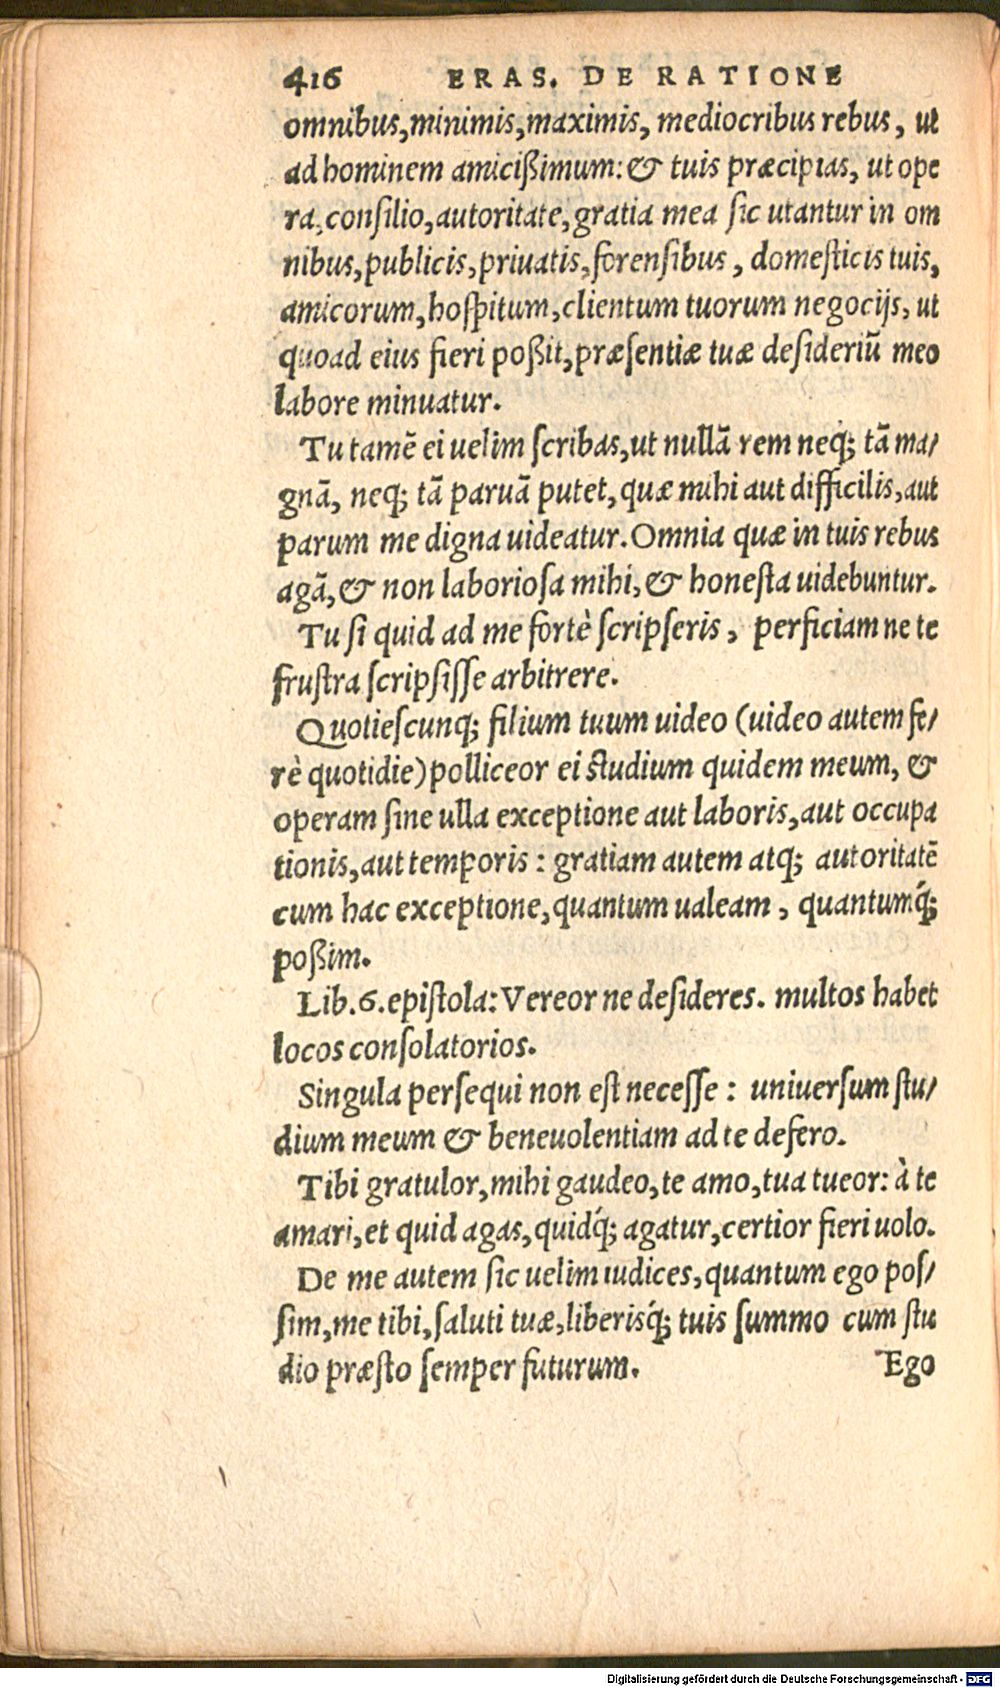 416 ERAS. DE RATIONE
omnibus,minimis,maximis, mediocribus rebus, ut
ad hominem amicißimum: & tuis præcipias, ut ope
ra, consilio, autoritate, gratia mea sic utantur in om
nibus, publicis, priuatis, forensibus, domesticis tuis,
amicorum, hospitum, clientum tuorum negocijs, ut
quoad eius fieri poßit, præsentiæ tuæ desideriũ meo
labore minuatur.
Tu tamẽ ei uelim scribas, ut nullã rem neq; tã ma/
gnã, neq; tã paruã putet, quæ mihi aut difficilis, aut
parum me digna uideatur. Omnia quæ in tuis rebus
agã, & non laboriosa mihi, & honesta uidebuntur.
Tu si quid ad me fortè scripseris, perficiam ne te
frustra scripsisse arbitrere.
Quotiescunq; filium tuum uideo (uideo autem fe/
rè quotidie) polliceor ei studium quidem meum, &
operam sine ulla exceptione aut laboris, aut occupa
tionis, aut temporis: gratiam autem atq; autoritatẽ
cum hac exceptione, quantum ualeam, quantumq́;
poßim.
Lib.6. epistola: Vereor ne desideres. multos habet
locos consolatorios.
Singula persequi non est necesse: uniuersum stu/
dium meum & beneuolentiam ad te defero.
Tibi gratulor, mihi gaudeo, te amo, tua tueor: à te
amari, et quid agas, quidq́; agatur, certior fieri uolo.
De me autem sic uelim iudices, quantum ego pos/
sim, me tibi, saluti tuæ, liberisq́; tuis summo cum stu
dio præsto semper futurum. Ego
Digitalisierung gefördert durch die Deutsche Forschungsgemeinschaft - DFG